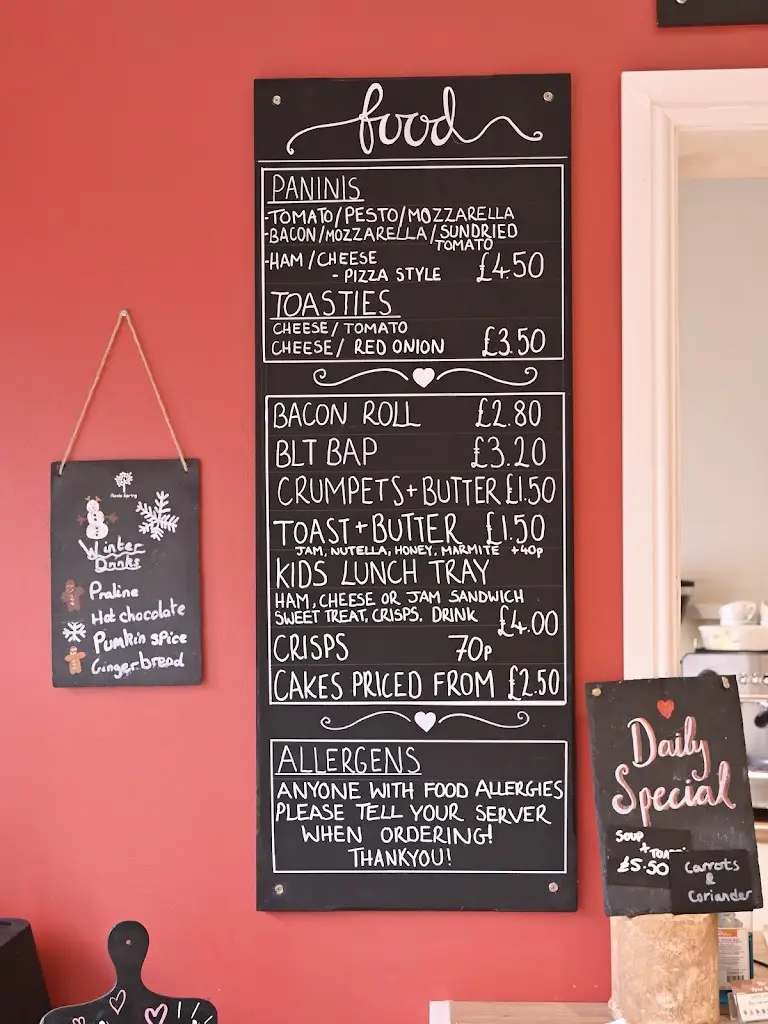 food
PANINIS
-TOMATO/PESTO/MOZZARELLA
-BACON/MOZZARELLA/SUNDRIED
TOMATO
-HAM/CHEESE
- PIZZA STYLE £4.50
TOASTIES
CHEESE/TOMATO
CHEESE/ RED ONION £3.50
BACON ROLL £2.80
BLT BAP £3.20
CRUMPETS+BUTTER £1.50
TOAST+BUTTER £1.50
JAM, NUTELLA, HONEY, MARMITE +40p
KIDS LUNCH TRAY
HAM, CHEESE OR JAM SANDWICH
SWEET TREAT, CRISPS, DRINK £4.00
CRISPS 70p
CAKES PRICED FROM £2.50
ALLERGENS
ANYONE WITH FOOD ALLERGIES
PLEASE TELL YOUR SERVER
WHEN ORDERING!
THANKYOU!
Winter
Drinks
Praline
Hot chocolate
Pumkin spice
Gingerbread
Daily
Special
SOUP
+
£5.50
Carrots
&
Coriander